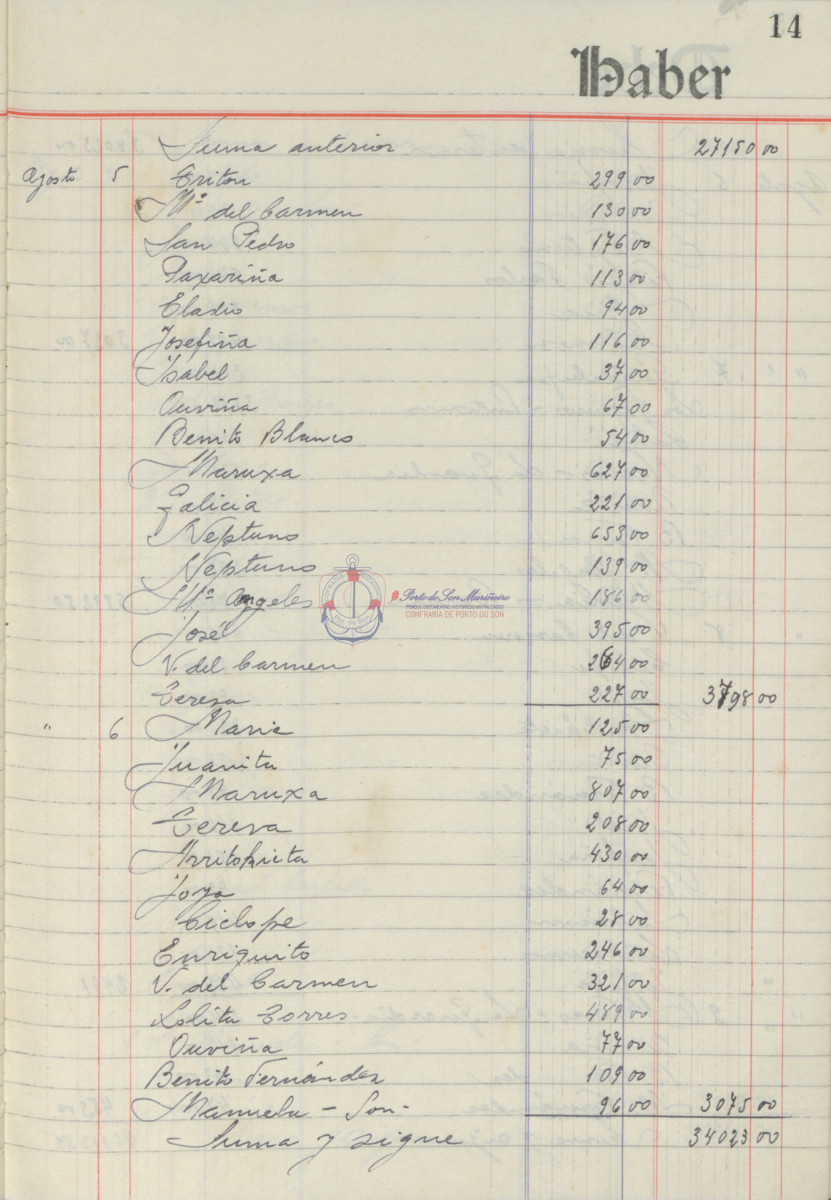 14
Haber
Suma anterior 27150 00
Agosto 5 Triton 299 00
Mª del Carmen 130 00
San Pedro 176 00
Paxariña 113 00
Eladio 94 00
Josefiña 116 00
Isabel 37 00
Ouviña 67 00
Benito Blanco 54 00
Maruxa 627 00
Galicia 221 00
Neptuno 653 00
Neptuno 139 00
Mª Angeles 186 00
José 395 00
V. del Carmen 264 00
Teresa 227 00 3798 00
" 6 Marie 125 00
Juanita 75 00
Maruxa 807 00
Teresa 208 00
Arritokieta 430 00
Joya 64 00
Ciclope 28 00
Enriquito 246 00
V. del Carmen 321 00
Lolita Torres 489 00
Ouviña 77 00
Benito Fernández 109 00
Manuela - Son - 96 00 3075 00
Suma y sigue 34023 00
Porto do Son Mariñeiro
FONDOS DOCUMENTAIS HISTÓRICOS DIXITALIZADOS
CONFRARÍA DE PORTO DO SON